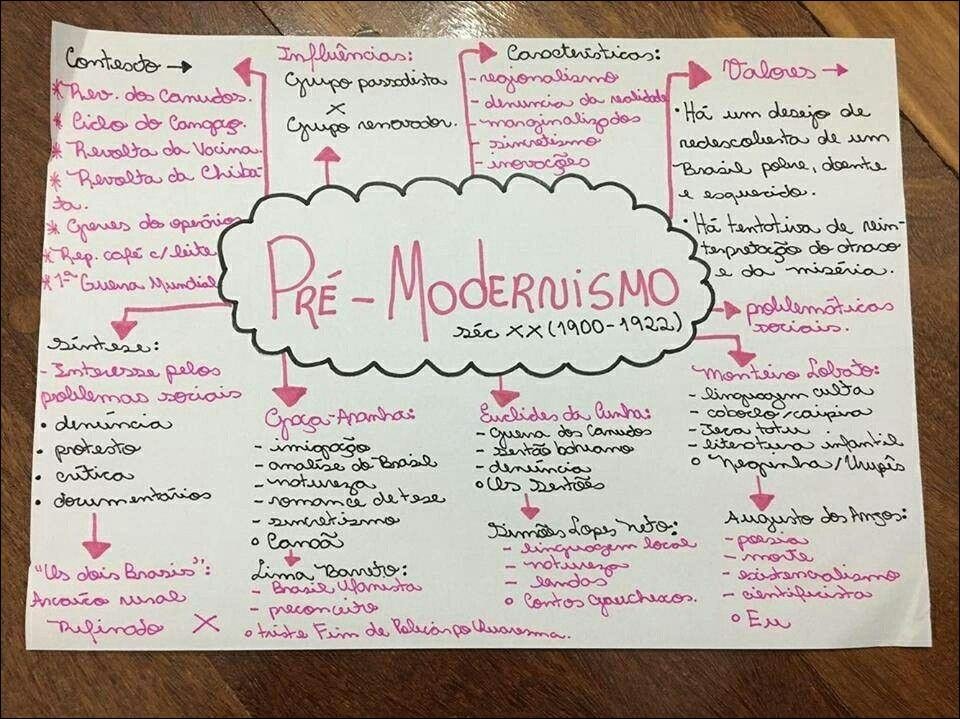 Contexto →
* Rev. dos Canudos.
* Ciclo do Cangaço.
* Revolta da Vacina.
* Revolta da Chiba-
ta.
* Greves do operário
* Rep. café c/ leite
* 1ª Guerra Mundial
Influências:
Grupo passadista
X
Grupo renovador.
Características:
- regionalismo
- denuncia da realidade
- marginalizados
- sincretismo
- inovações
Valores →
• Há um desejo de
redescoberta de um
Brasil pobre, doente
e esquecido.
• Há tentativa de rein-
terpretação do atraso
e da miséria.
PRÉ-MODERNISMO
séc XX (1900-1922)
problemáticas
sociais.
Síntese:
- Interesse pelos
problemas sociais
• denúncia
• protesto
• crítica
• documentários
"Os dois Brasis":
Arcaico rural
Refinado X
Graça-Aranha:
- imigração
- analise do Brasil
- natureza
- romance de tese
- sincretismo
o Canaã
Lima Barreto:
- Brasil Ufanista
- preconceito
o triste Fim de Policarpo Quaresma.
Euclides da Cunha:
- Guerra dos Canudos
- Sertão bahiano
- denúncia
o Os Sertões
Simões Lopes Neto:
- linguagem local
- natureza
- lendas
o Contos Gauchexos.
Monteiro Lobato:
- linguagem culta
- caboclo/caipira
- Jeca tatu
- literatura infantil
o Neguinha/Urupês
Augusto dos Anjos:
- poesia
- morte
- existencialismo
- cientificista
o Eu